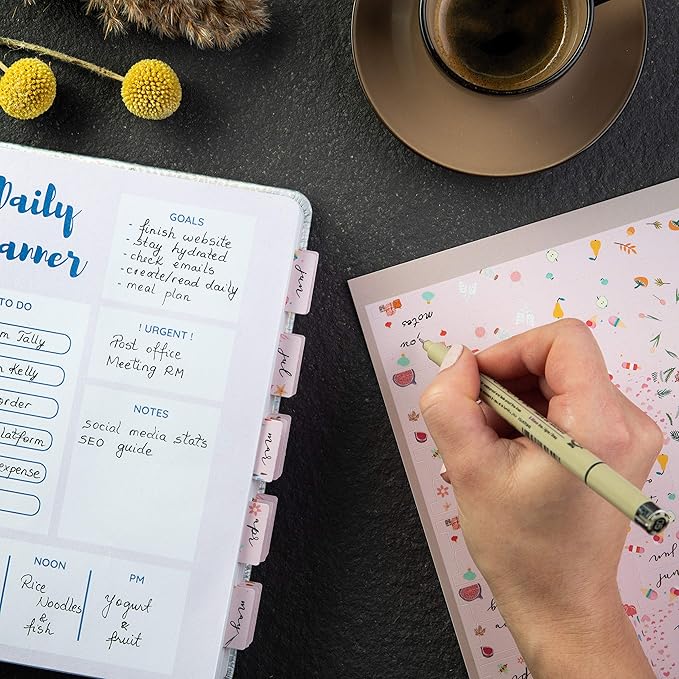 Daily
anner
GOALS
- finish website
- stay hydrated
- check emails
- create/read daily
- meal plan
TO DO
m Tally
n Kelly
order
platform
expense
! URGENT !
Post office
Meeting RM
NOTES
social media stats
SEO guide
NOON
Rice
Noodles
&
fish
PM
Yogurt
&
fruit
jun
jul
mar
apr
may
notes